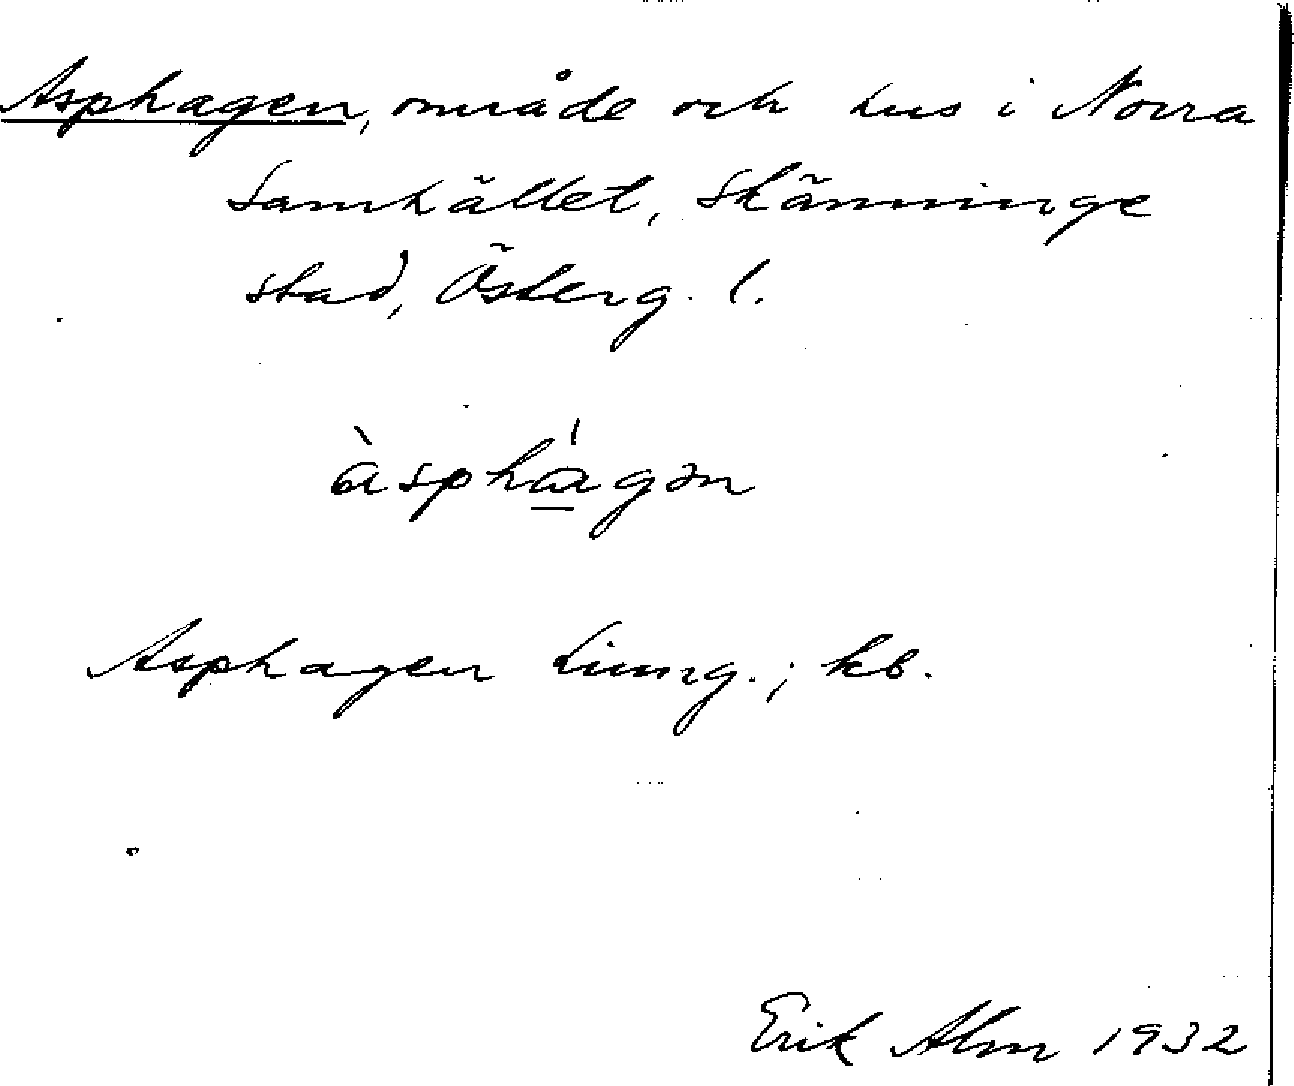 Asphagen, område och hus i Norra
Samhället, Skänninge
stad, Österg. l.
àsphágən
Asphagen Ljung.; kb.
Erik Alm 1932